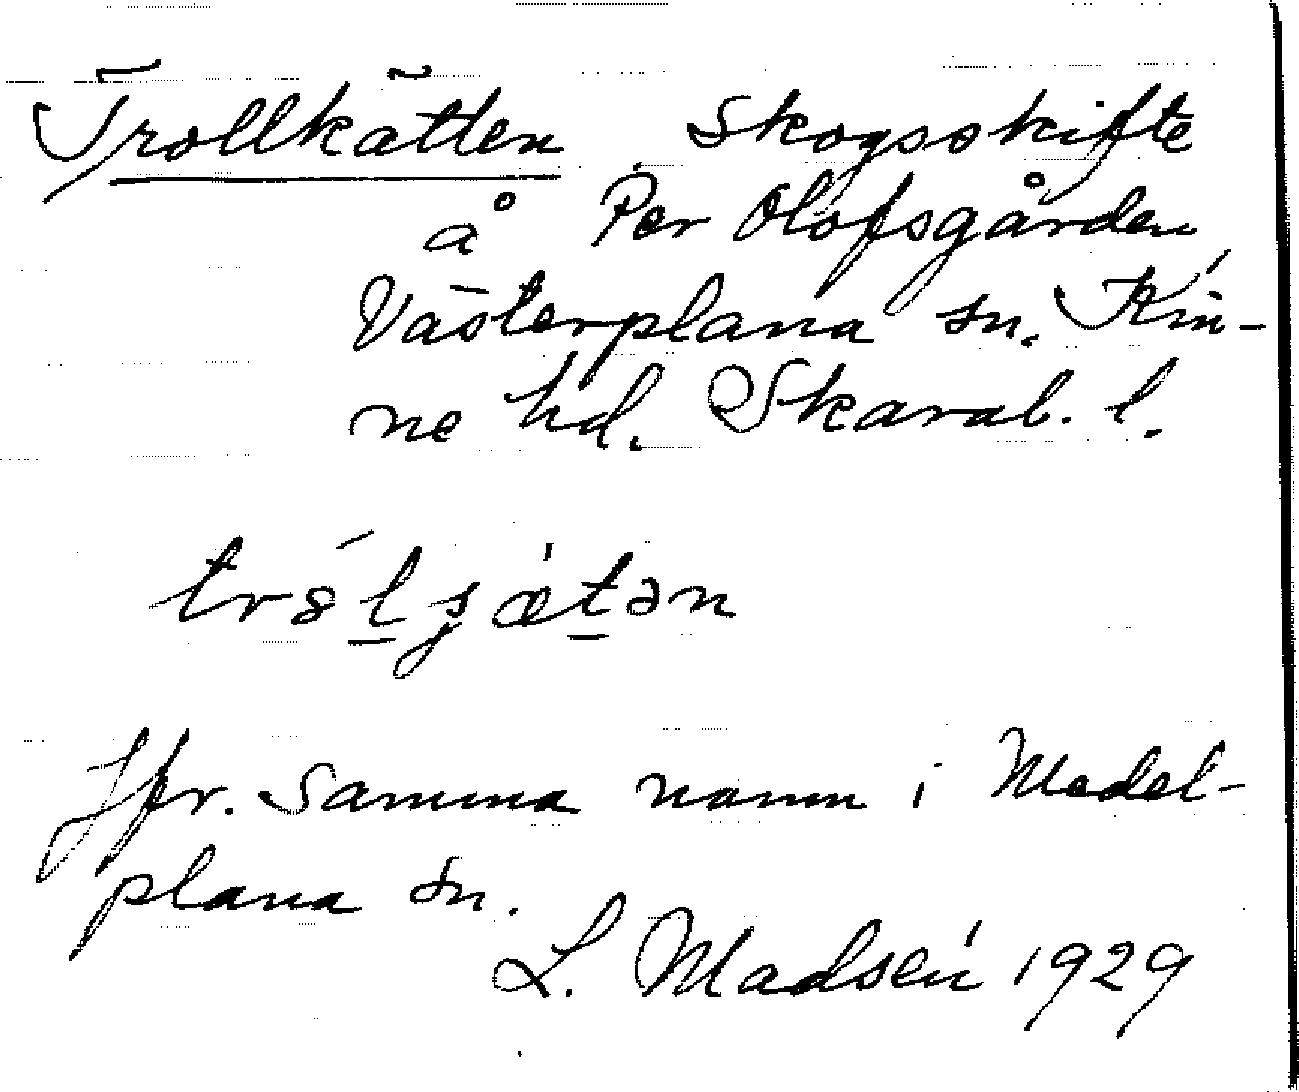 Trollkätten Skogsskifte
å Per Olofsgården
Västerplana sn. Kin-
ne hd. Skarab. l.
Jfr. Samma namn i Medel-
plana sn.
L. Madsén 1929